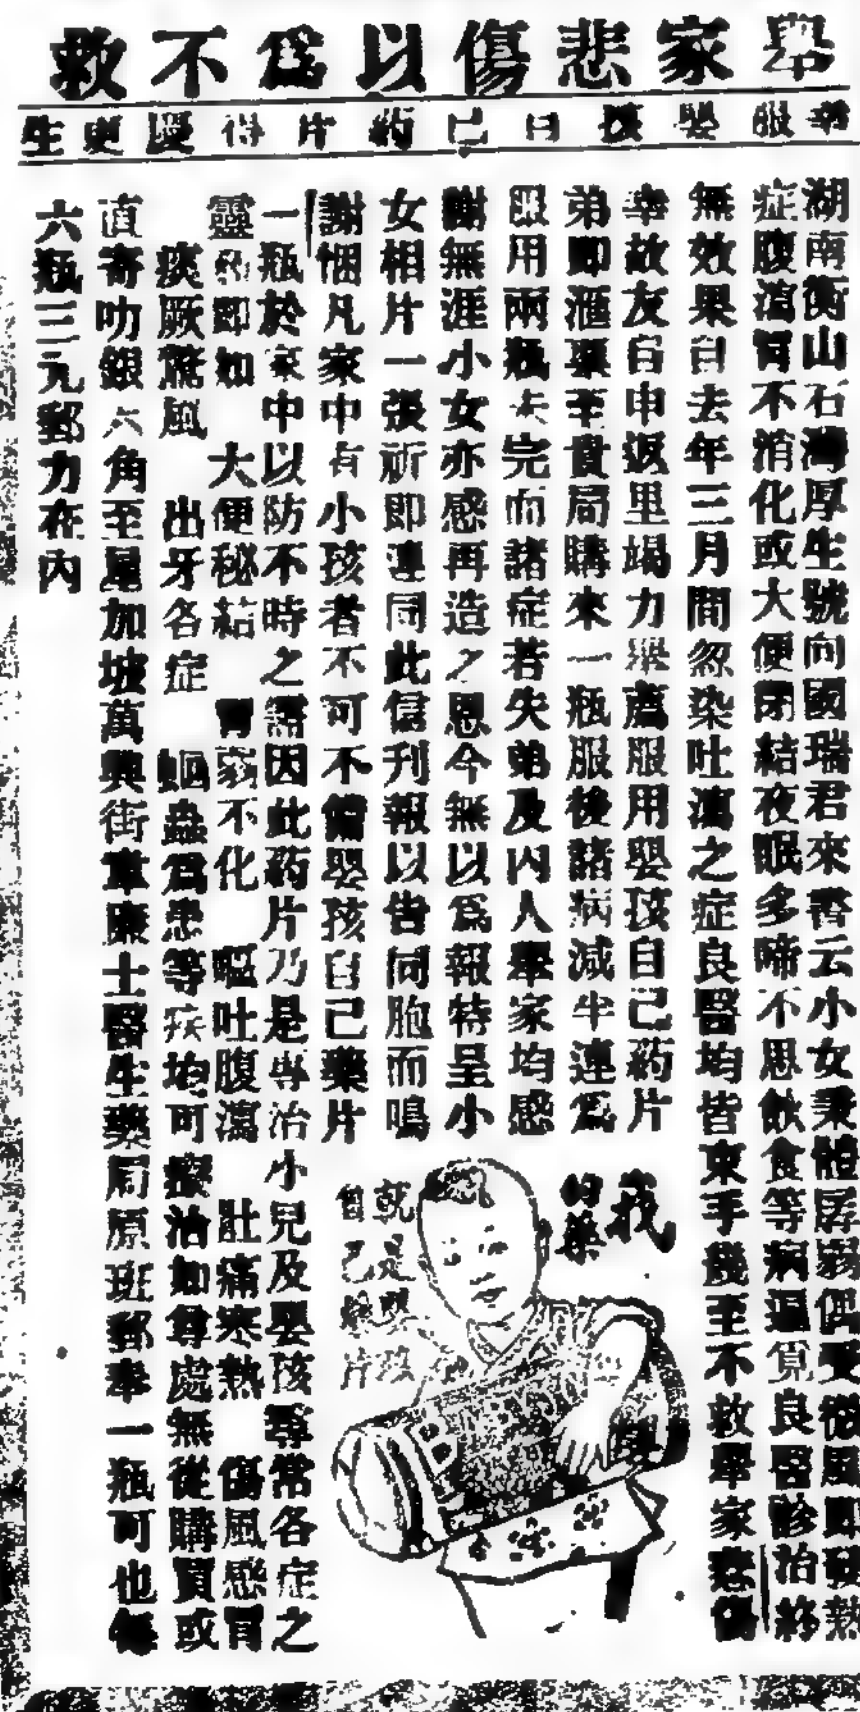 舉家悲傷以爲不救
幸服嬰孩自己葯片得慶更生
湖南衡山石灣厚生號向國瑞君來書云小女秉體孱弱偶受微風即發熱
症腹瀉胃不消化或大便閉結夜眠多啼不思飲食等病遍覓良醫診治終
無效果自去年三月間忽染吐瀉之症良醫均皆束手幾至不救舉家悲傷
幸故友自申返里竭力舉薦服用嬰孩自己葯片
弟即滙購至貴局購來一瓶服後諸病減半連爲
服用兩瓶未完而諸症若失弟及內人舉家均感
謝無涯小女亦感再造之恩今無以爲報特呈小
女相片一張祈即連同此信刊報以告同胞而鳴
謝悃凡家中有小孩者不可不備嬰孩自己藥片
一瓶於家中以防不時之需因此葯片乃是專治小兒及嬰孩尋常各症之
靈葯即如 大便秘結 胃弱不化 嘔吐腹瀉 肚痛寒熱 傷風感冒
痰厥驚風 出牙各症 蛔蟲爲患等疾均可療治如尊處無從購買或
直寄叻銀六角至星加坡萬興街韋廉士醫生藥局原班郵奉一瓶可也每
六瓶三元郵力在內
我
的藥
就是嬰孩
自己藥片